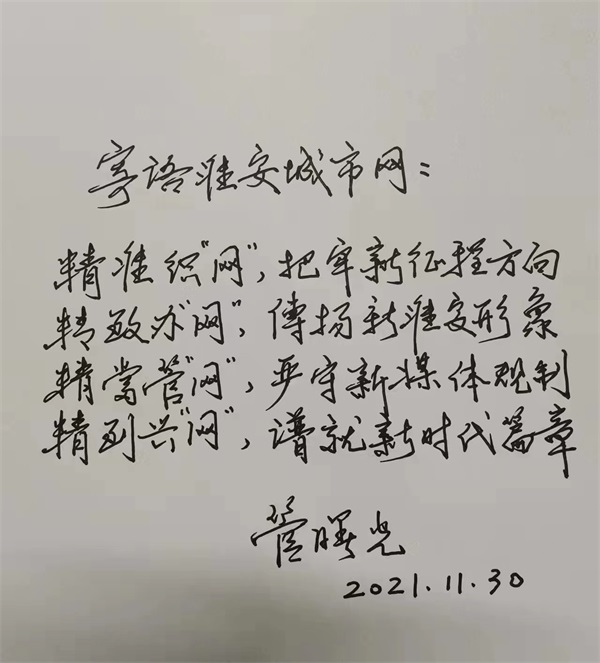 寄语淮安城市网：
精准织"网"，把牢新征程方向
精致办"网"，傳扬新淮安形象
精當管"网"，严守新媒体规制
精到兴"网"，谱就新时代篇章
管曙光
2021.11.30